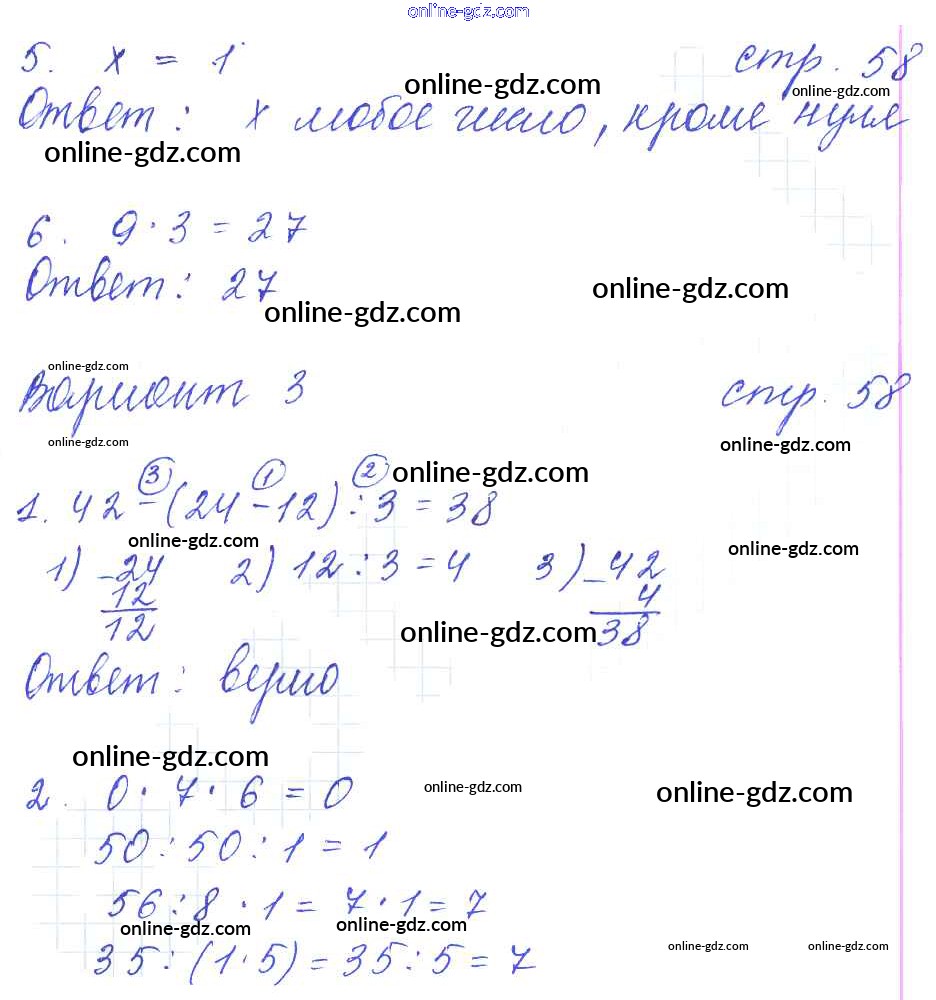 online-gdz.com
5. x = 1 стр. 58
online-gdz.com
online-gdz.com
Ответ: x любое число, кроме нуля
online-gdz.com
online-gdz.com
6. 9 · 3 = 27
online-gdz.com
Ответ: 27
online-gdz.com
online-gdz.com
online-gdz.com
Вариант 3 стр. 58
online-gdz.com
online-gdz.com
③ ① ② online-gdz.com
1. 42 - (24 - 12) : 3 = 38
online-gdz.com
online-gdz.com
1) -24 2) 12 : 3 = 4 3) -42
12 4
12 38
online-gdz.com
Ответ: верно
online-gdz.com
2. 0 · 7 · 6 = 0
online-gdz.com
online-gdz.com
50 : 50 : 1 = 1
56 : 8 · 1 = 7 · 1 = 7
online-gdz.com
online-gdz.com
35 : (1 · 5) = 35 : 5 = 7
online-gdz.com
online-gdz.com